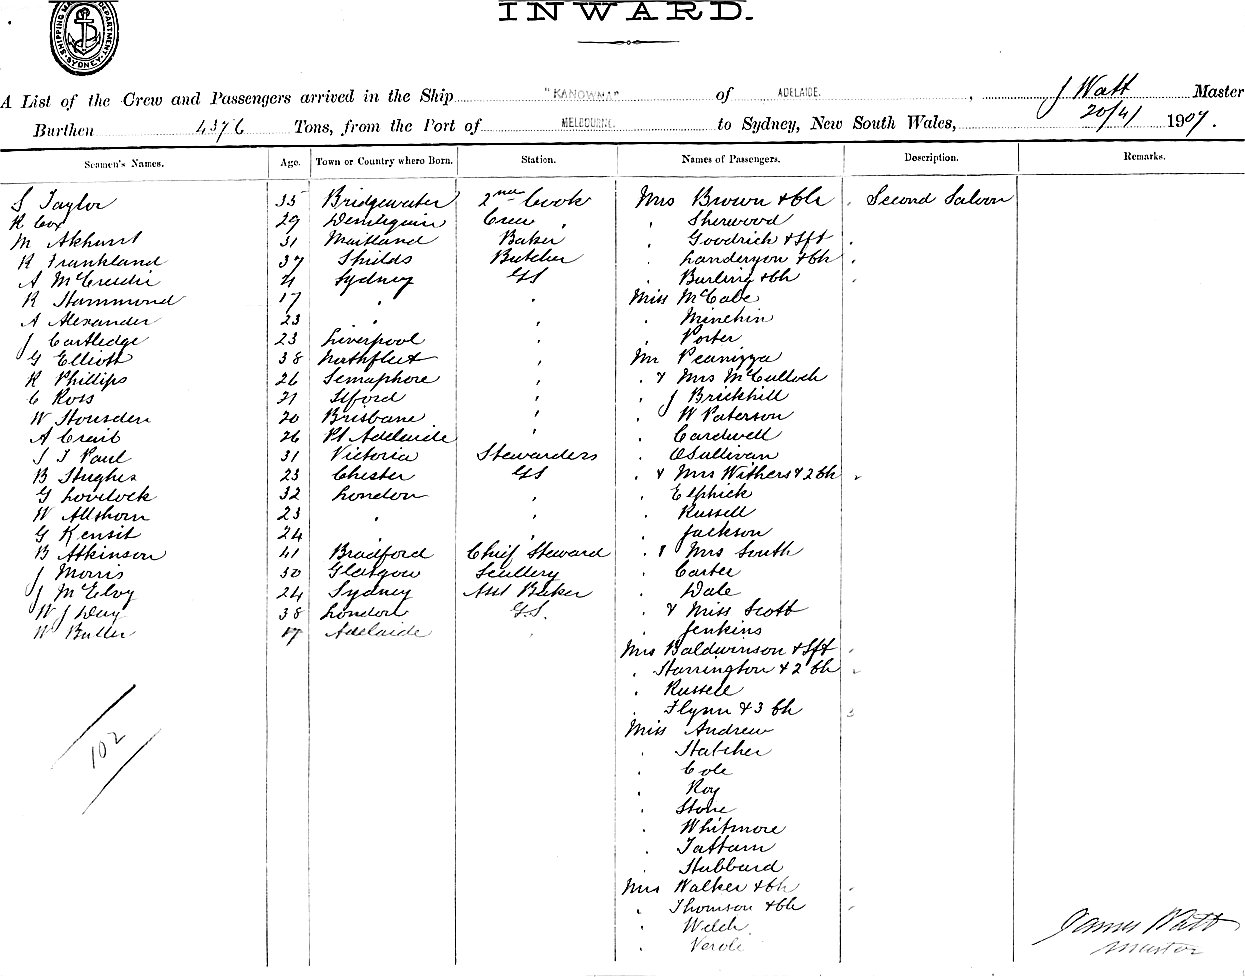 SHIPPING MASTER'S DEPARTMENT SYDNEY
INWARD.
A List of the Crew and Passengers arrived in the Ship "KANOWNA" of ADELAIDE, J Watt Master
Burthen 4376 Tons, from the Port of MELBOURNE to Sydney, New South Wales, 20/4/1907.
Seamen's Names. Age. Town or Country where Born. Station. Names of Passengers. Description. Remarks.
S Taylor 35 Bridgewater 2nd Cook Mrs Brown & Ch Second Saloon
R Cox 29 Deniliquin Crew " Sherwood
M Akhurst 31 Maitland Baker " Goodrich & Sft
R Frankland 37 Shields Butcher " & Ch
A McCreadie 21 Sydney GS " Burling & Ch
R Hammond 17 " " Miss McCabe
A Alexander 23 " " " Minchin
J Cartledge 23 Liverpool " " Porter
G Elliott 38 Northfleet " Mr
R Phillips 26 Semaphore " " & Mrs McCulloch
C Ross 21 Ilford " " J Brickhill
W 20 Brisbane " " W Paterson
A 26 Pt Adelaide " " Cardwell
S J Paul 31 Victoria Stewardess " OSullivan
B Hughes 23 Chester GS " & Mrs Withers & 2 Ch
G Lovelock 32 London " " Elphick
W Allshorn 23 " " " Russell
G Kensit 24 " " " Jackson
B Atkinson 41 Bradford Chief Steward " & Mrs South
J Morris 30 Glasgow Scullery " Carter
J McElvoy 24 Sydney Asst Baker " Dale
W J Day 38 London G.S. " & Miss Scott
W Butler 17 Adelaide " " Jenkins
Mrs Baldwinson & Sft
" Harrington & 2 Ch
" Russell
" Flynn & 3 Ch 3
Miss Andrew
" Hatcher
" Cole
" Roy
" Stone
" Whitmore
" Tattam
" Hubbard
102
Mrs Walker & Ch
" Thomson & Ch
" Welch
" Veroli
James Watt
Master